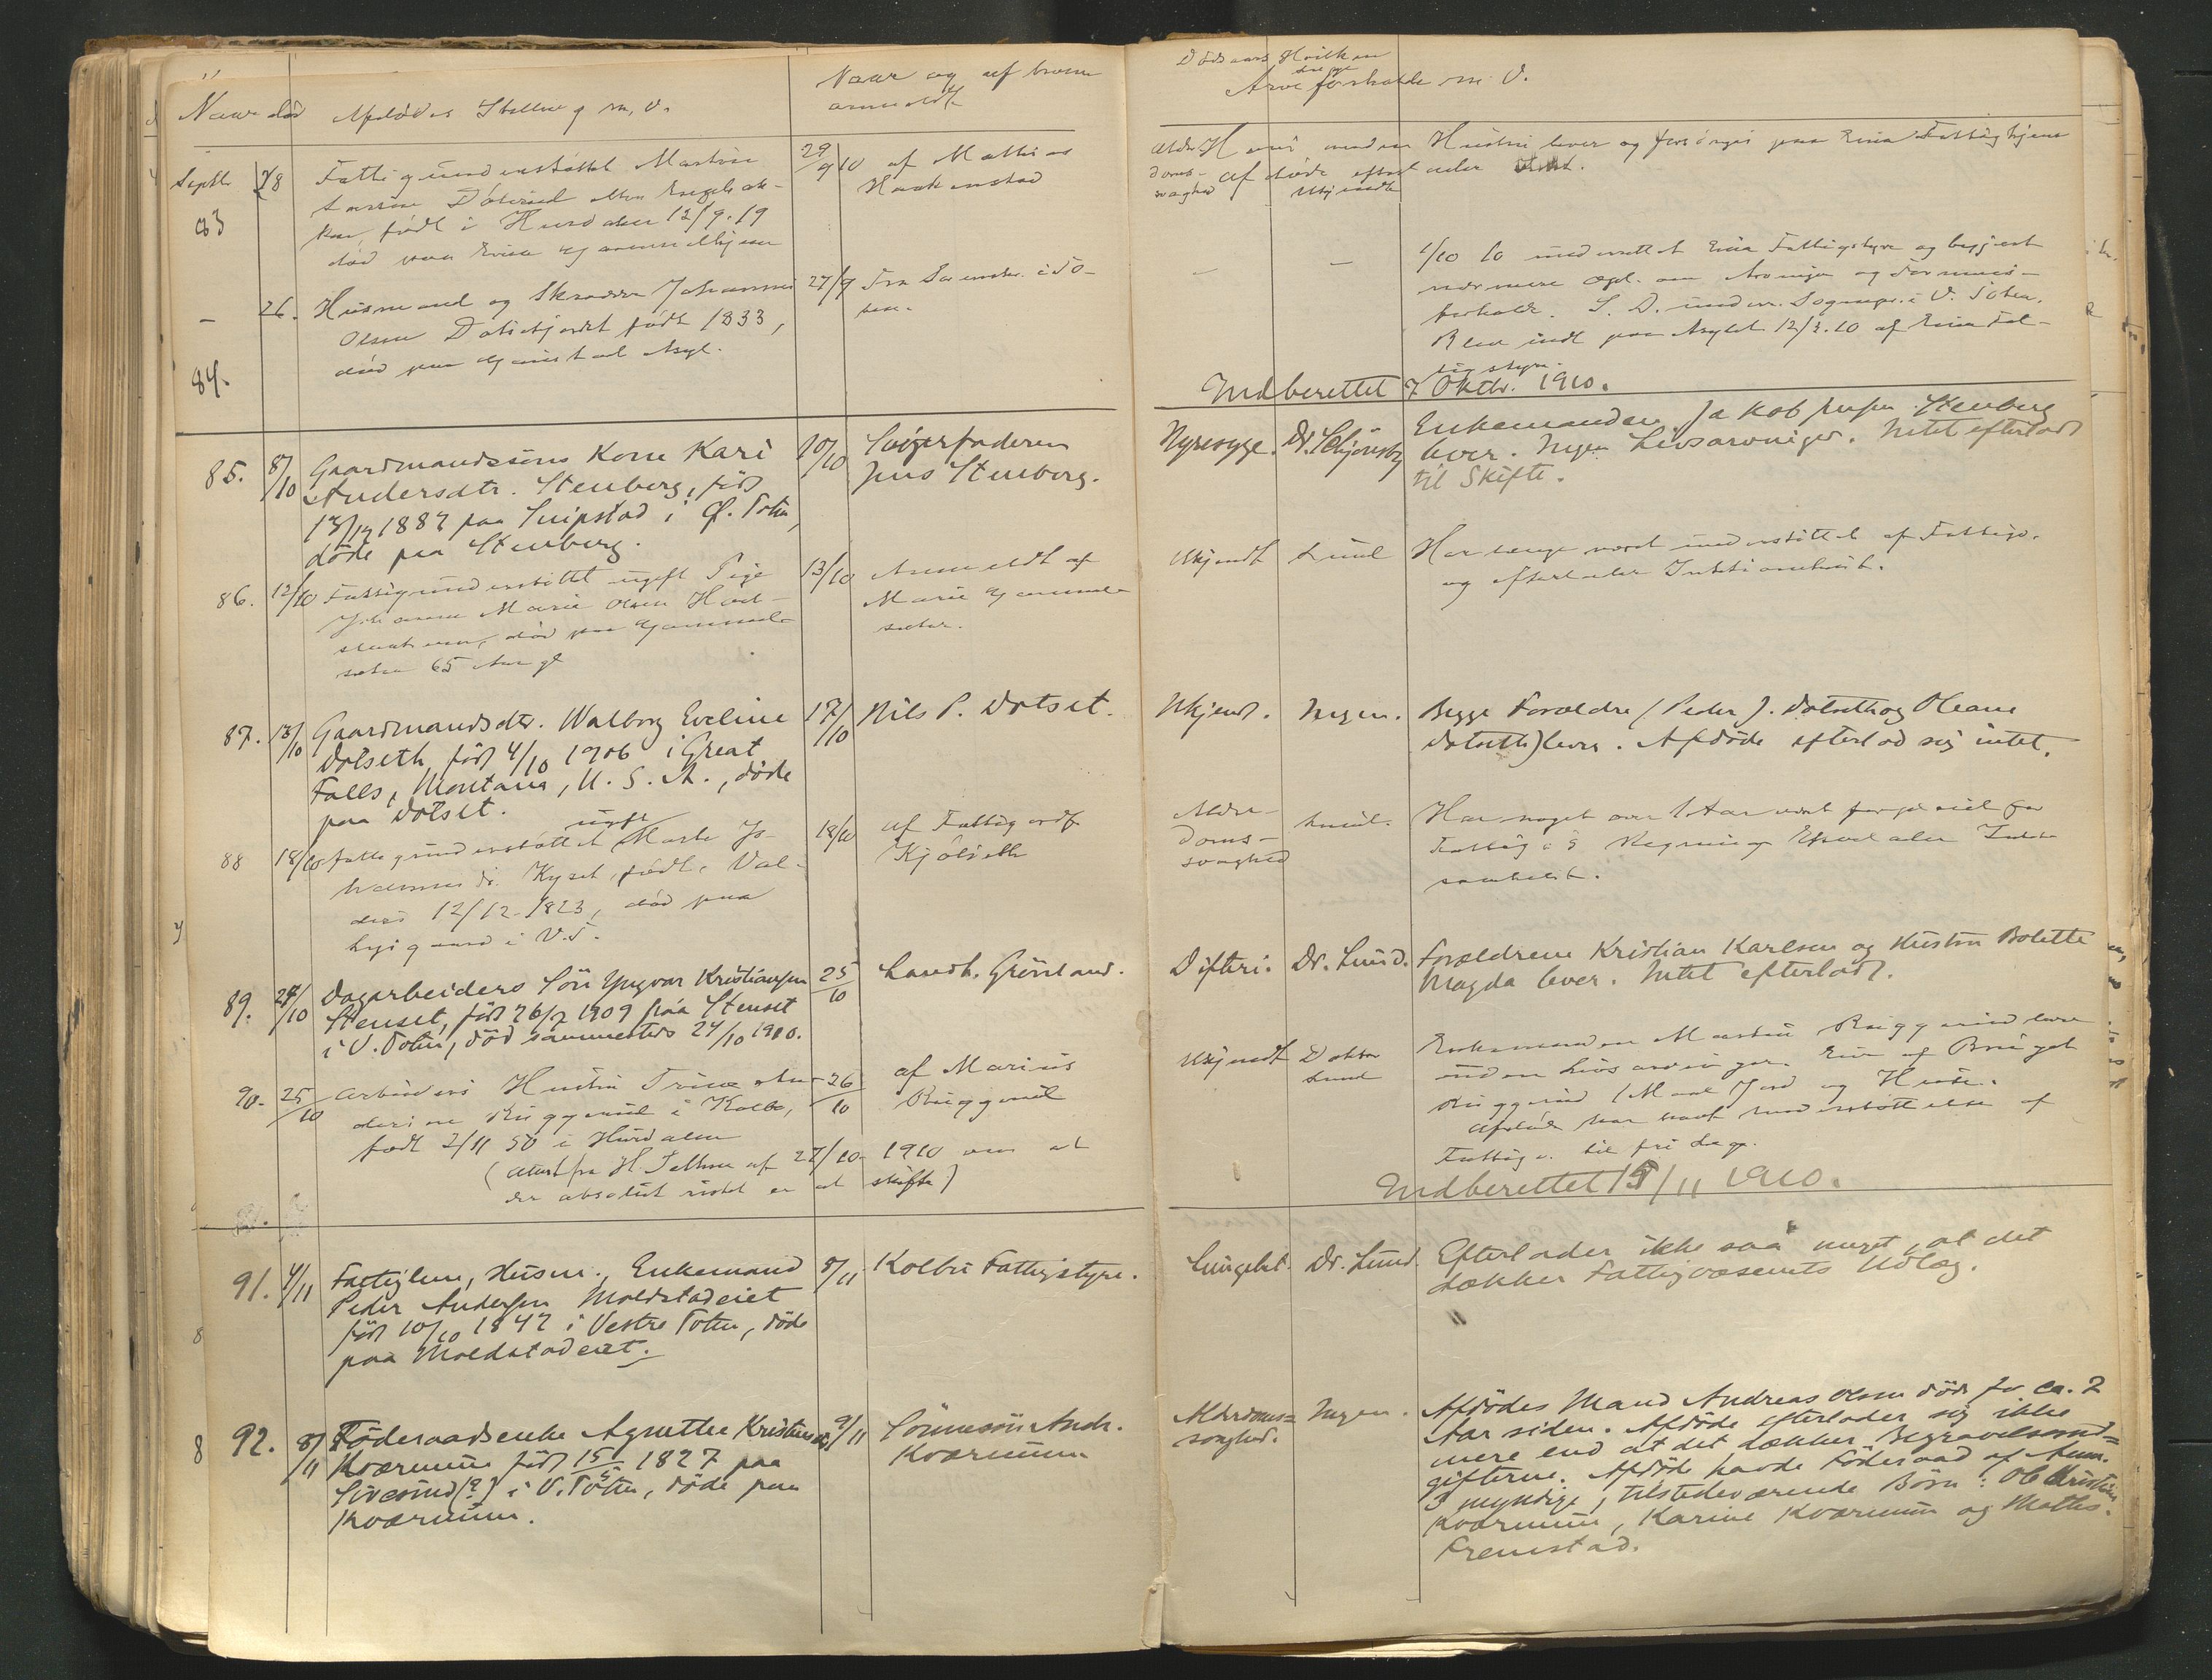 Naar død
Afdødes Stilling m. v.
Naar og af hvem
anmeldt
Dødsaars
Hvilken
Arveforholde m. V.
Septbr. 28
83
Fattigunderstøttet
født i Hurdalen 12/9. 19
død paa
29/9 10 af Mathias
Haakenstad
Alder-
doms-
svaghed
Ukjendt
Hustru lever og forsørges paa Eina Fattighjem
- 26.
84.
Husmand og Skrædder Johannes
Olsen født 1833,
død paa Asyl.
27/9 Fra
- -
1/10 10 underrettet Eina Fattigstyre og begjært
nærmere opl. om Arvinger og Formues-
forhold. S. D. underr. Sognepr. i V. Toten.
Blev indl paa Asylet 12/3. 10 af Eina Fat-
tigstyre
Indberettet 7 Oktbr. 1910.
85. 8/10 Gaardmandssøns Kone Kari
Andersdtr. Stenberg, født
13/12 1887 paa Snipstad i Ø. Toten,
døde paa Stenberg.
10/10 Svigerfaderen
Jens Stenberg.
Nyresyge. Dr.
Enkemanden Jakob Jensen Stenberg
lever. Ingen Livsarvinger. Intet efterladt
til Skifte.
86. 12/10 Fattigunderstøttet ugift Pige
Johanne Marie Olsen
død paa Gammel-
sæter 65 Aar gl
13/10 Anmeldt af
Marie Gammel-
sæter.
Ukjendt Lund
Har længe været understøttet af Fattigv.
og efterlader
87. 13/10 Gaardmandsdtr. Walborg Eveline
Dotseth, født 4/10 1906 i Great
Falls, Montana, U. S. A., døde
paa Dotset.
17/10 Nils P. Dotset.
Ukjendt. Ingen.
Begge Forældre (Peder J. Dotseth og Oleane
Dotseth) lever. Afdøde efterlod sig intet.
88 18/10 fattigunderstøttet ugift Marte Jo-
hannesdr. Kyset, født i Val-
ders 12/12-1823, død paa
i V. T.
18/10 af Fattigordf
Kjølseth
Alder-
doms-
svaghed
Lund.
Har noget over 1 Aar været
Fattigv's Regning. Efterlader
89. 24/10 Dagarbeiders Søn Yngvar Kristiansen
Stenset, født 26/2 1909 paa Stenset
i V. Toten, død sammesteds 24/10 1910.
25/10 Landh. Grønland.
Difteri. Dr. Lund.
Forældrene Kristian Karlsen og Hustru Bolette
Magda lever. Intet efterladt.
90. 25/10 Arbeiders Hustru Trine An-
derine Ruggerud i Kolbu,
født 2/11 50 i Hurdalen
26/10 af Marius
Ruggerud
(Attest fra H. af 27/10 1910 om at
der absolut intet er at skifte)
Ukjendt Doktor
Lund
Enkemanden Martin Ruggerud lever
uden Livsarvinger. Eier af Bruget
Ruggerud 1 Maal Jord og Huse.
Afdøde har havt understøttelse af
Fattigv. til fri Læge.
Indberettet 15/11 1910.
91. 4/11 Fattiglem, Husm., Enkemand
Peder Andersen Moldstadeiet
født 10/10 1842 i Vestre Toten, døde
paa Moldstadeiet.
8/11 Kolbu Fattigstyre.
Lungebet. Dr. Lund.
Efterlader ikke saa meget, at det
dækker Fattigvæsenets Udlæg.
92. 8/11 Føderaadsenke Agnethe Kristiansdtr.
Kværnum født 15/5 1827 paa
Sivesind(?) i V. Toten, døde paa
Kværnum.
9/11 Sønnesøn Andr.
Kværnum
Alderdoms=
svaghed.
Ingen.
Afdødes Mand Andreas Olsen døde for ca. 2
Aar siden. Afdøde efterlader sig ikke
mere end at det dækker Begravelsesud=
gifterne. Afdøde havde Føderaad af
3 myndige, tilstedeværende Børn: Ole Kristian
Kværnum, Karine Kværnum og Mathis
Fremstad.
8